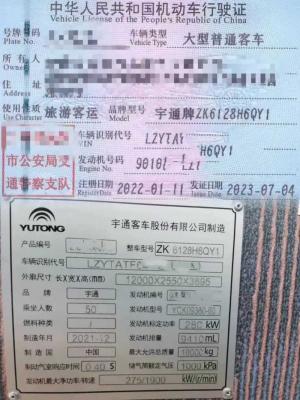 中华人民共和国机动车行驶证
Vehicle License of the People's Republic of China
号牌号码
Plate No.
车辆类型 大型普通客车
Vehicle Type
所有人
Owner
住址
使用性质 旅游客运 品牌型号 宇通牌ZK6128H6QY1
Use Character
车辆识别代号 LZYTAT H6QY1
VIN
市公安局交
通警察支队
发动机号码 9010L
注册日期 2022-01-11 发证日期 2023-07-04
YUTONG
宇通客车股份有限公司制造
产品编号
整车型号 ZK 6128H6QY1
车辆识别代号 LZYTATF
外廓尺寸 长X宽X高(mm) 12000X2550X3695
品牌 宇通
发动机型号
乘坐人数 50
发动机标定功率 280 kW
燃料种类
发动机排量 9410 mL
制造年月 2021-12
最大允许总质量 18000 kg
制造国 中国
制动气室响应时间 0.40 S
储气筒额定气压 1000 kPa
发动机最大净功率/转速 275/1900 kW/(r/min)